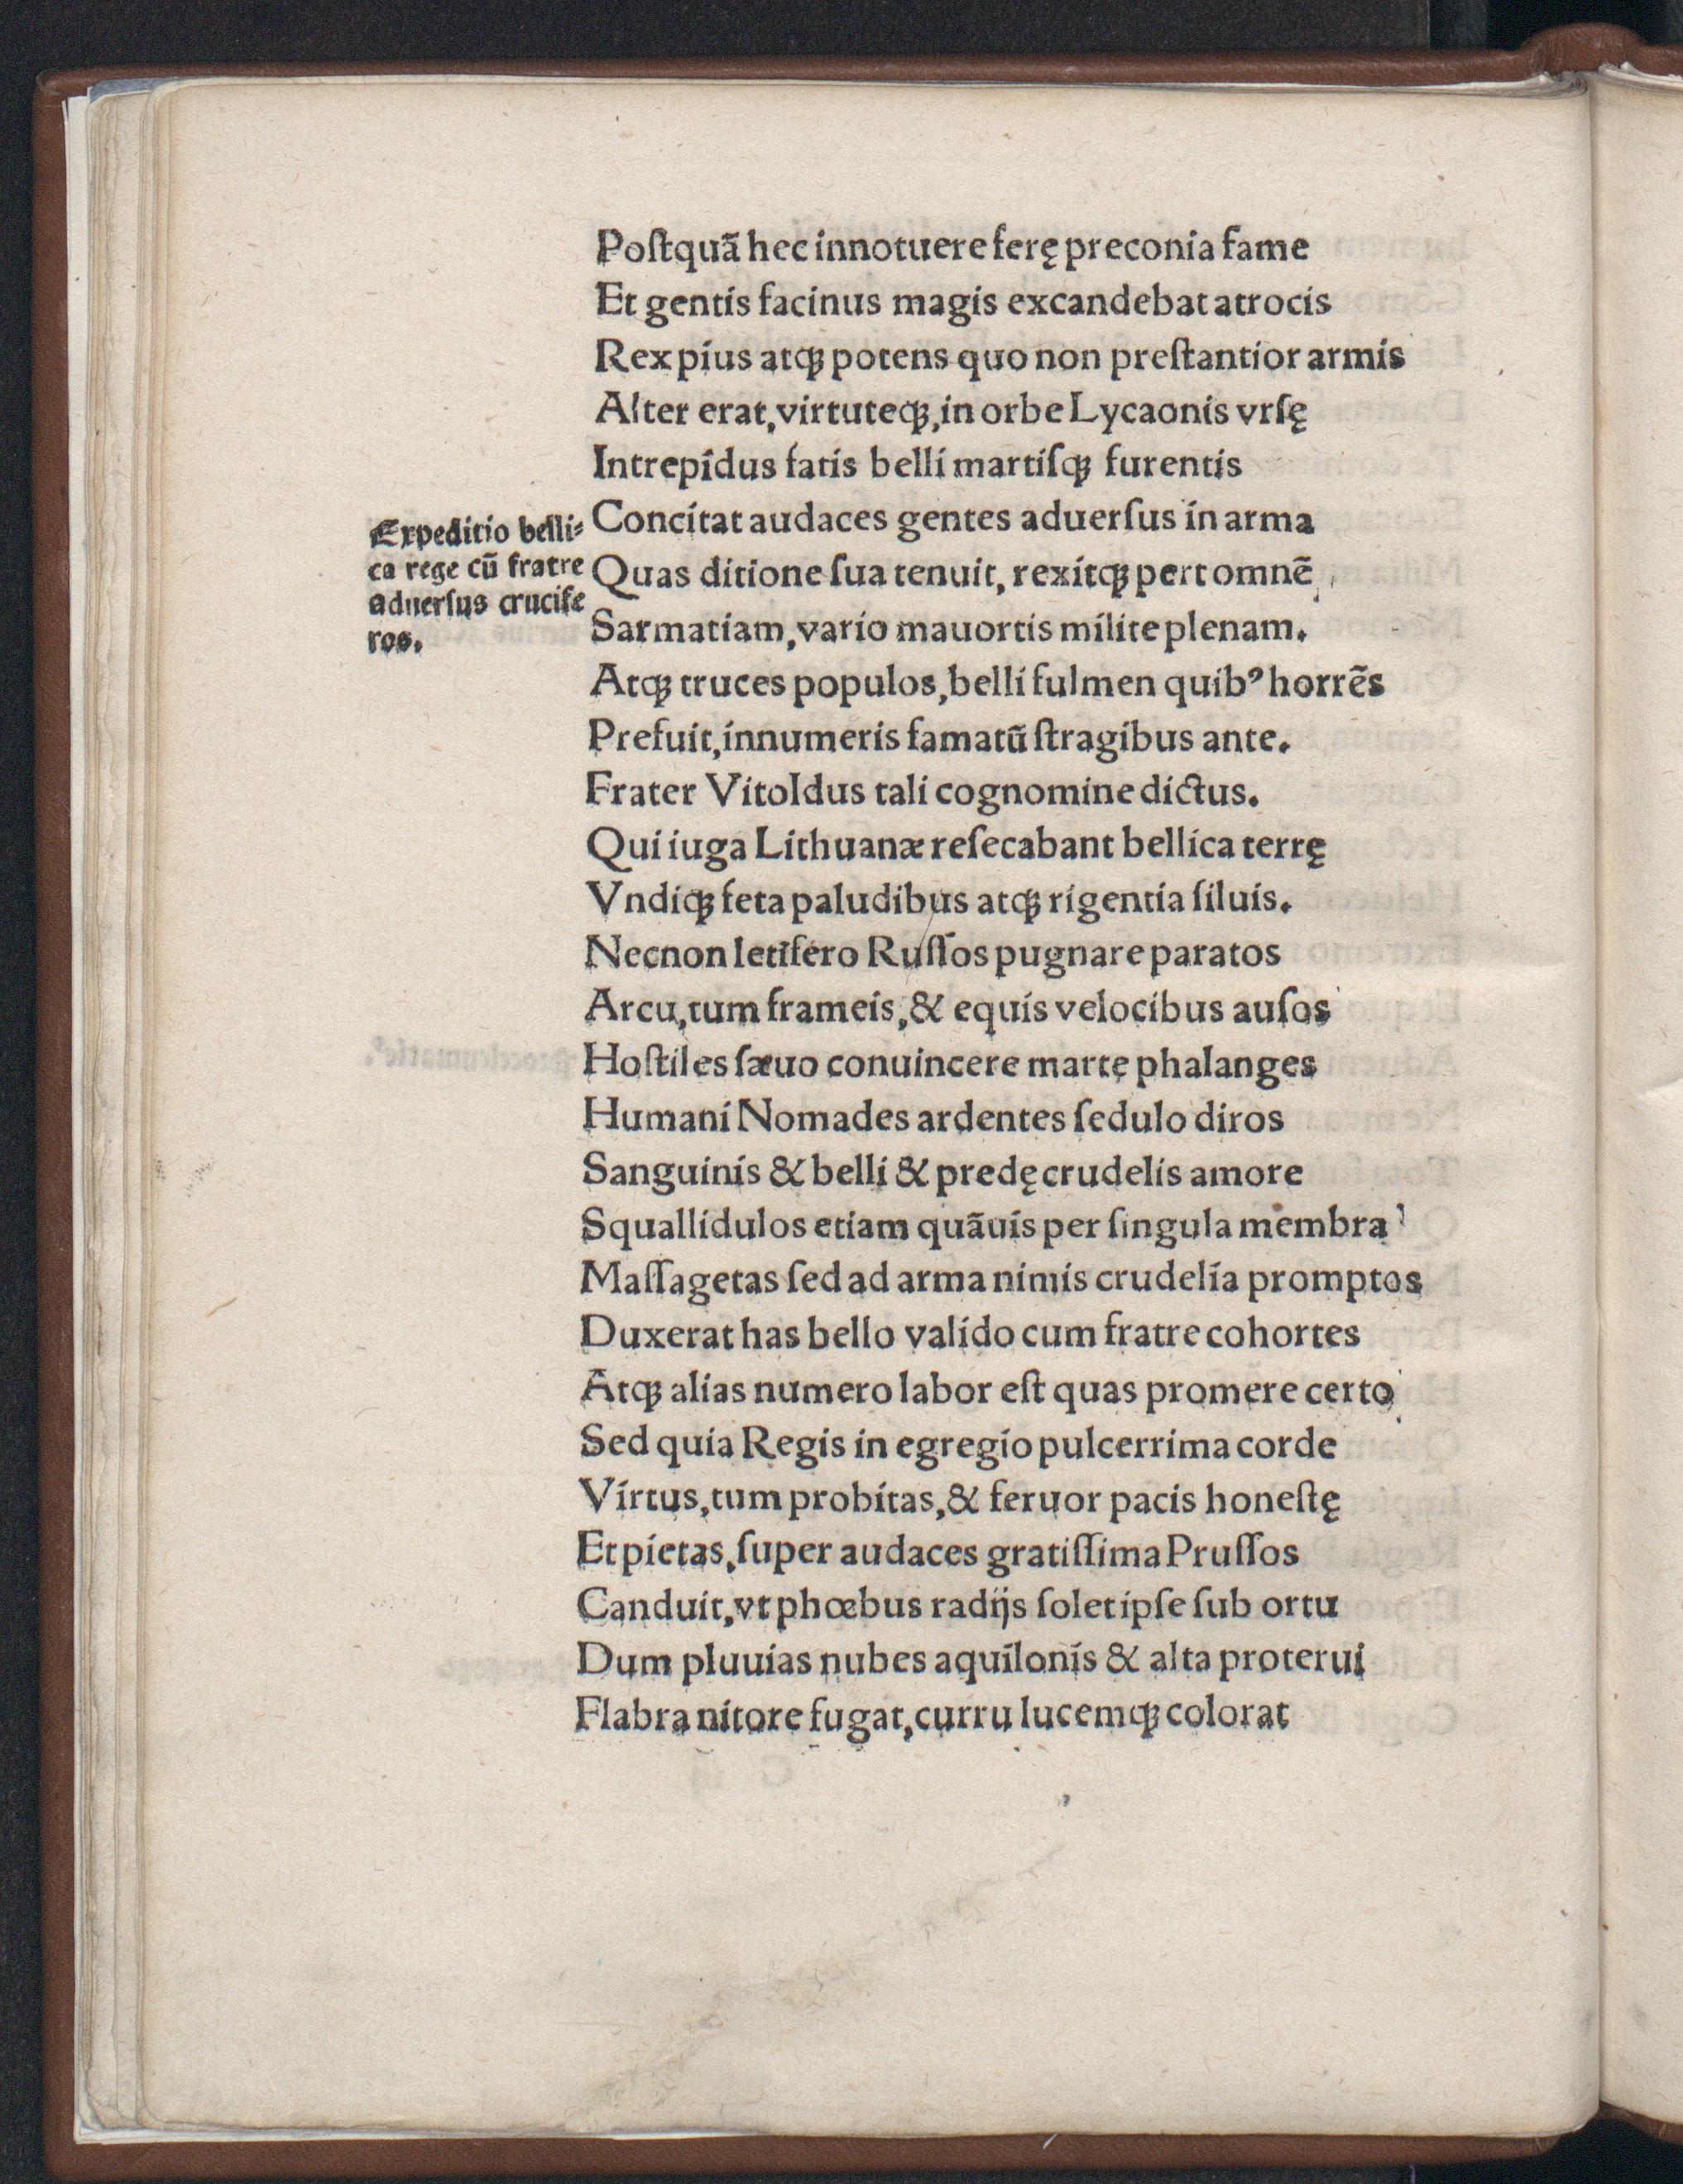 Poſtquã hec innotuere ferę preconia fame
Et gentis facinus magis excandebat atrocis
Rex pius atqꝫ potens quo non preſtantior armis
Alter erat, virtuteqꝫ, in orbe Lycaonis vrſę
Intrepidus fatis belli martiſqꝫ furentis
Concitat audaces gentes aduerſus in arma
Quas ditione ſua tenuit, rexitqꝫ pert omnẽ
Sarmatiam, vario mauortis milite plenam.
Atqꝫ truces populos, belli fulmen quibꝰ horrẽs
Prefuit, innumeris famatũ ſtragibus ante.
Frater Vitoldus tali cognomine dictus.
Qui iuga Lithuanæ reſecabant bellica terrę
Vndiqꝫ feta paludibus atqꝫ rigentia ſiluis.
Necnon letifero Ruſſos pugnare paratos
Arcu, tum frameis, & equis velocibus auſos
Hoſtiles ſæuo conuincere marte phalanges
Humani Nomades ardentes ſedulo diros
Sanguinis & belli & predę crudelis amore
Squallidulos etiam quãuis per ſingula membra
Maſſagetas ſed ad arma nimis crudelia promptos
Duxerat has bello valido cum fratre cohortes
Atqꝫ alias numero labor eſt quas promere certo
Sed quia Regis in egregio pulcerrima corde
Virtus, tum probitas, & feruor pacis honeſtę
Et pietas, ſuper audaces gratiſſima Pruſſos
Canduit, vt phœbus radijs ſolet ipſe ſub ortu
Dum pluuias nubes aquilonis & alta proterui
Flabra nitore fugat, curru lucemqꝫ colorat
Expeditio belli⸗
ca rege cũ fratre
aduerſus crucife
ros.